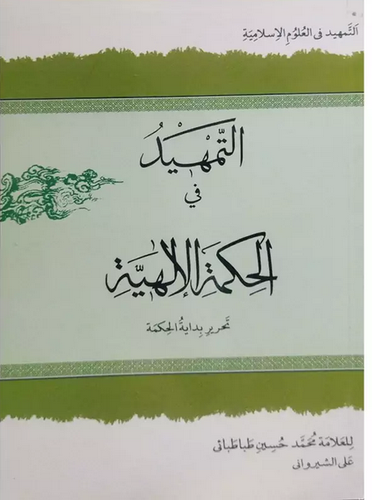 اَلتَّمهيد فى العُلومِ الإسلاميَّةِ
التَّمْهيدُ
في
الحِكمَةِ الإلهيَّةِ
تَحريرِ بِدايَةُ الحِكمَة
لِلعَلّامَة مُحَمَّد حُسين طَباطَبائى
عَلى الشيروانى